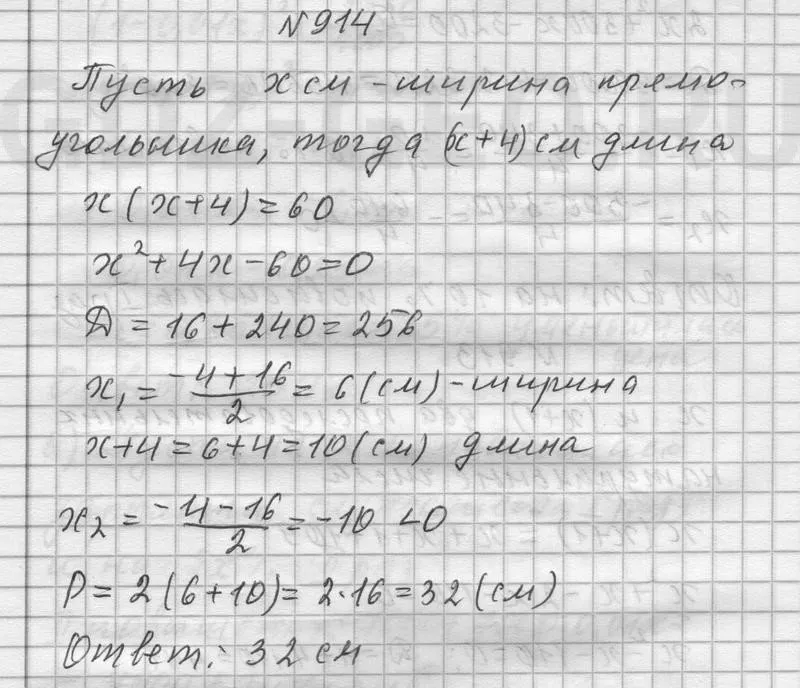 №914
Пусть x см - ширина прямо-
угольника, тогда (x+4) см длина
x(x+4)=60
x²+4x-60=0
Д=16+240=256
x₁=(-4+16)/2=6(см)-ширина
x+4=6+4=10(см) длина
x₂=(-4-16)/2=-10 <0
P=2(6+10)=2·16=32(см)
Ответ: 32 см